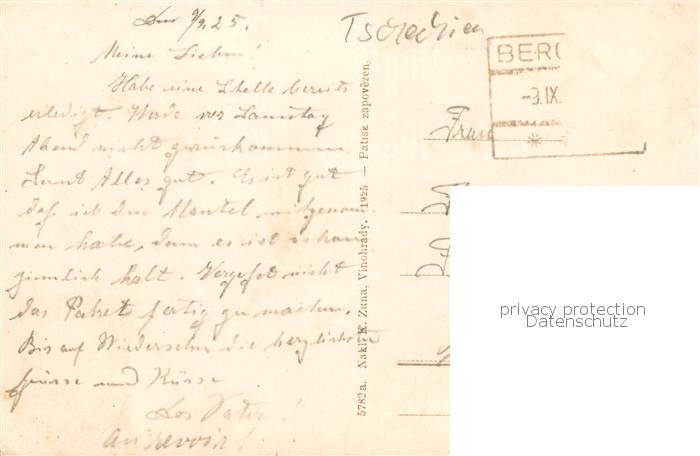 9/9.25.
Meine Lieben!
Habe eine Stelle bereits
erledigt. Werde vor Samstag
Abend nicht zurückkommen
Sonst Alles gut. Es ist gut
daß ich den Mantel mitgenom-
men habe, denn es ist schon
ziemlich kalt. Vergeßt nicht
das Paket fertig zu machen.
Bis auf Wiedersehn die herzlichsten
Grüsse und Küsse
Vater!
Au revoir!
5782a. Nakl. K. Zuna, Vinohrady. 1925. — Patisk zapovězen.
Tschechien
BERO
-3.IX.
*
Frau
privacy protection
Datenschutz